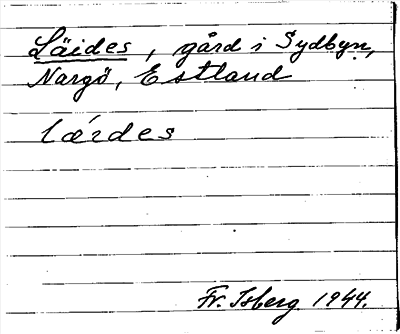 Läides, gård i Sydbyn,
Nargö, Estland
lǽrdes
Fr. Isberg 1944.